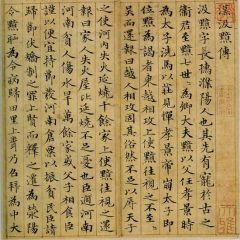 漢汲黯傳
汲黯字長孺濮陽人也其先有寵於古之
衛君至黯七世為卿大夫黯以父任孝景時
為太子洗馬以莊見憚孝景帝崩太子即
位黯為謁者東越相攻上使黯往視之不至
吳而還報曰越人相攻固其俗然不足以辱天子
之使河內失火延燒千餘家上使黯往視之還
報曰家人失火屋比延燒不足憂也臣過河南
河南貧人傷水旱萬餘家或父子相食臣
謹以便宜持節發河南倉粟以振貧民臣請
歸節伏矯制之罪上賢而釋之遷為滎陽
令黯恥為令病歸田里上聞乃召拜為中大